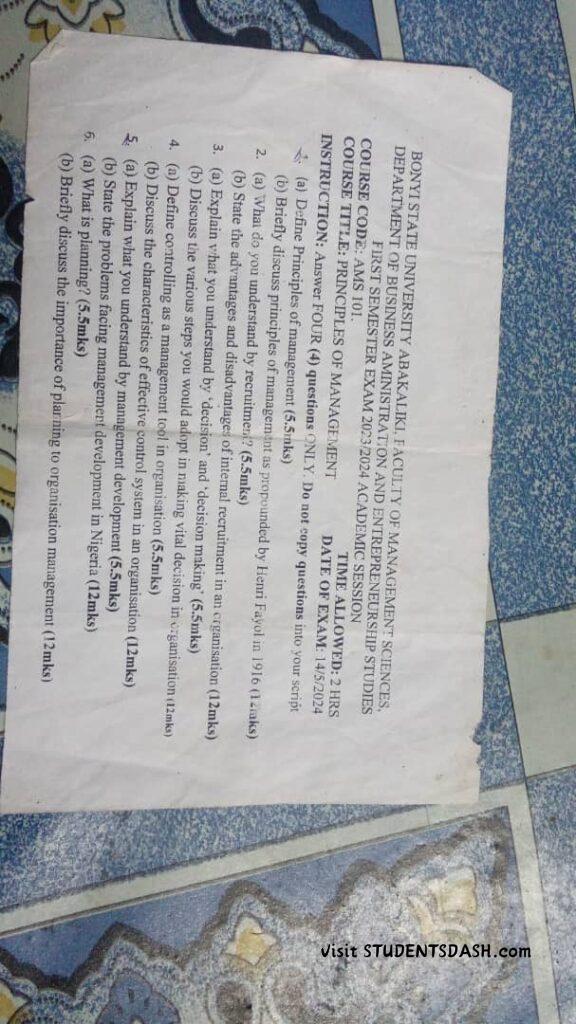 BONYI STATE UNIVERSITY ABAKALIKI, FACULTY OF MANAGEMENT SCIENCES.
DEPARTMENT OF BUSINESS AMINISTRATION AND ENTREPRENEURSHIP STUDIES
FIRST SEMESTER EXAM 2023/2024 ACADEMIC SESSION
COURSE CODE: AMS 101.
TIME ALLOWED: 2 HRS
COURSE TITLE: PRINCIPLES OF MANAGEMENT
DATE OF EXAM: 14/5/2024
INSTRUCTION: Answer FOUR (4) questions ONLY. Do not copy questions into your script
1. (a) Define Principles of management (5.5mks)
(b) Briefly discuss principles of management as propounded by Henri Fayol in 1916 (12mks)
2. (a) What do you understand by recruitment? (5.5mks)
(b) State the advantages and disadvantages of internal recruitment in an organisation (12mks)
3. (a) Explain what you understand by 'decision' and 'decision making' (5.5mks)
(b) Discuss the various steps you would adopt in making vital decision in organisation (12mks)
4. (a) Define controlling as a management tool in organisation (5.5mks)
(b) Discuss the characteristics of effective control system in an organisation (12mks)
5. (a) Explain what you understand by management development (5.5mks)
(b) State the problems facing management development in Nigeria (12mks)
6. (a) What is planning? (5.5mks)
(b) Briefly discuss the importance of planning to organisation management (12mks)
Visit STUDENTSDASH.com